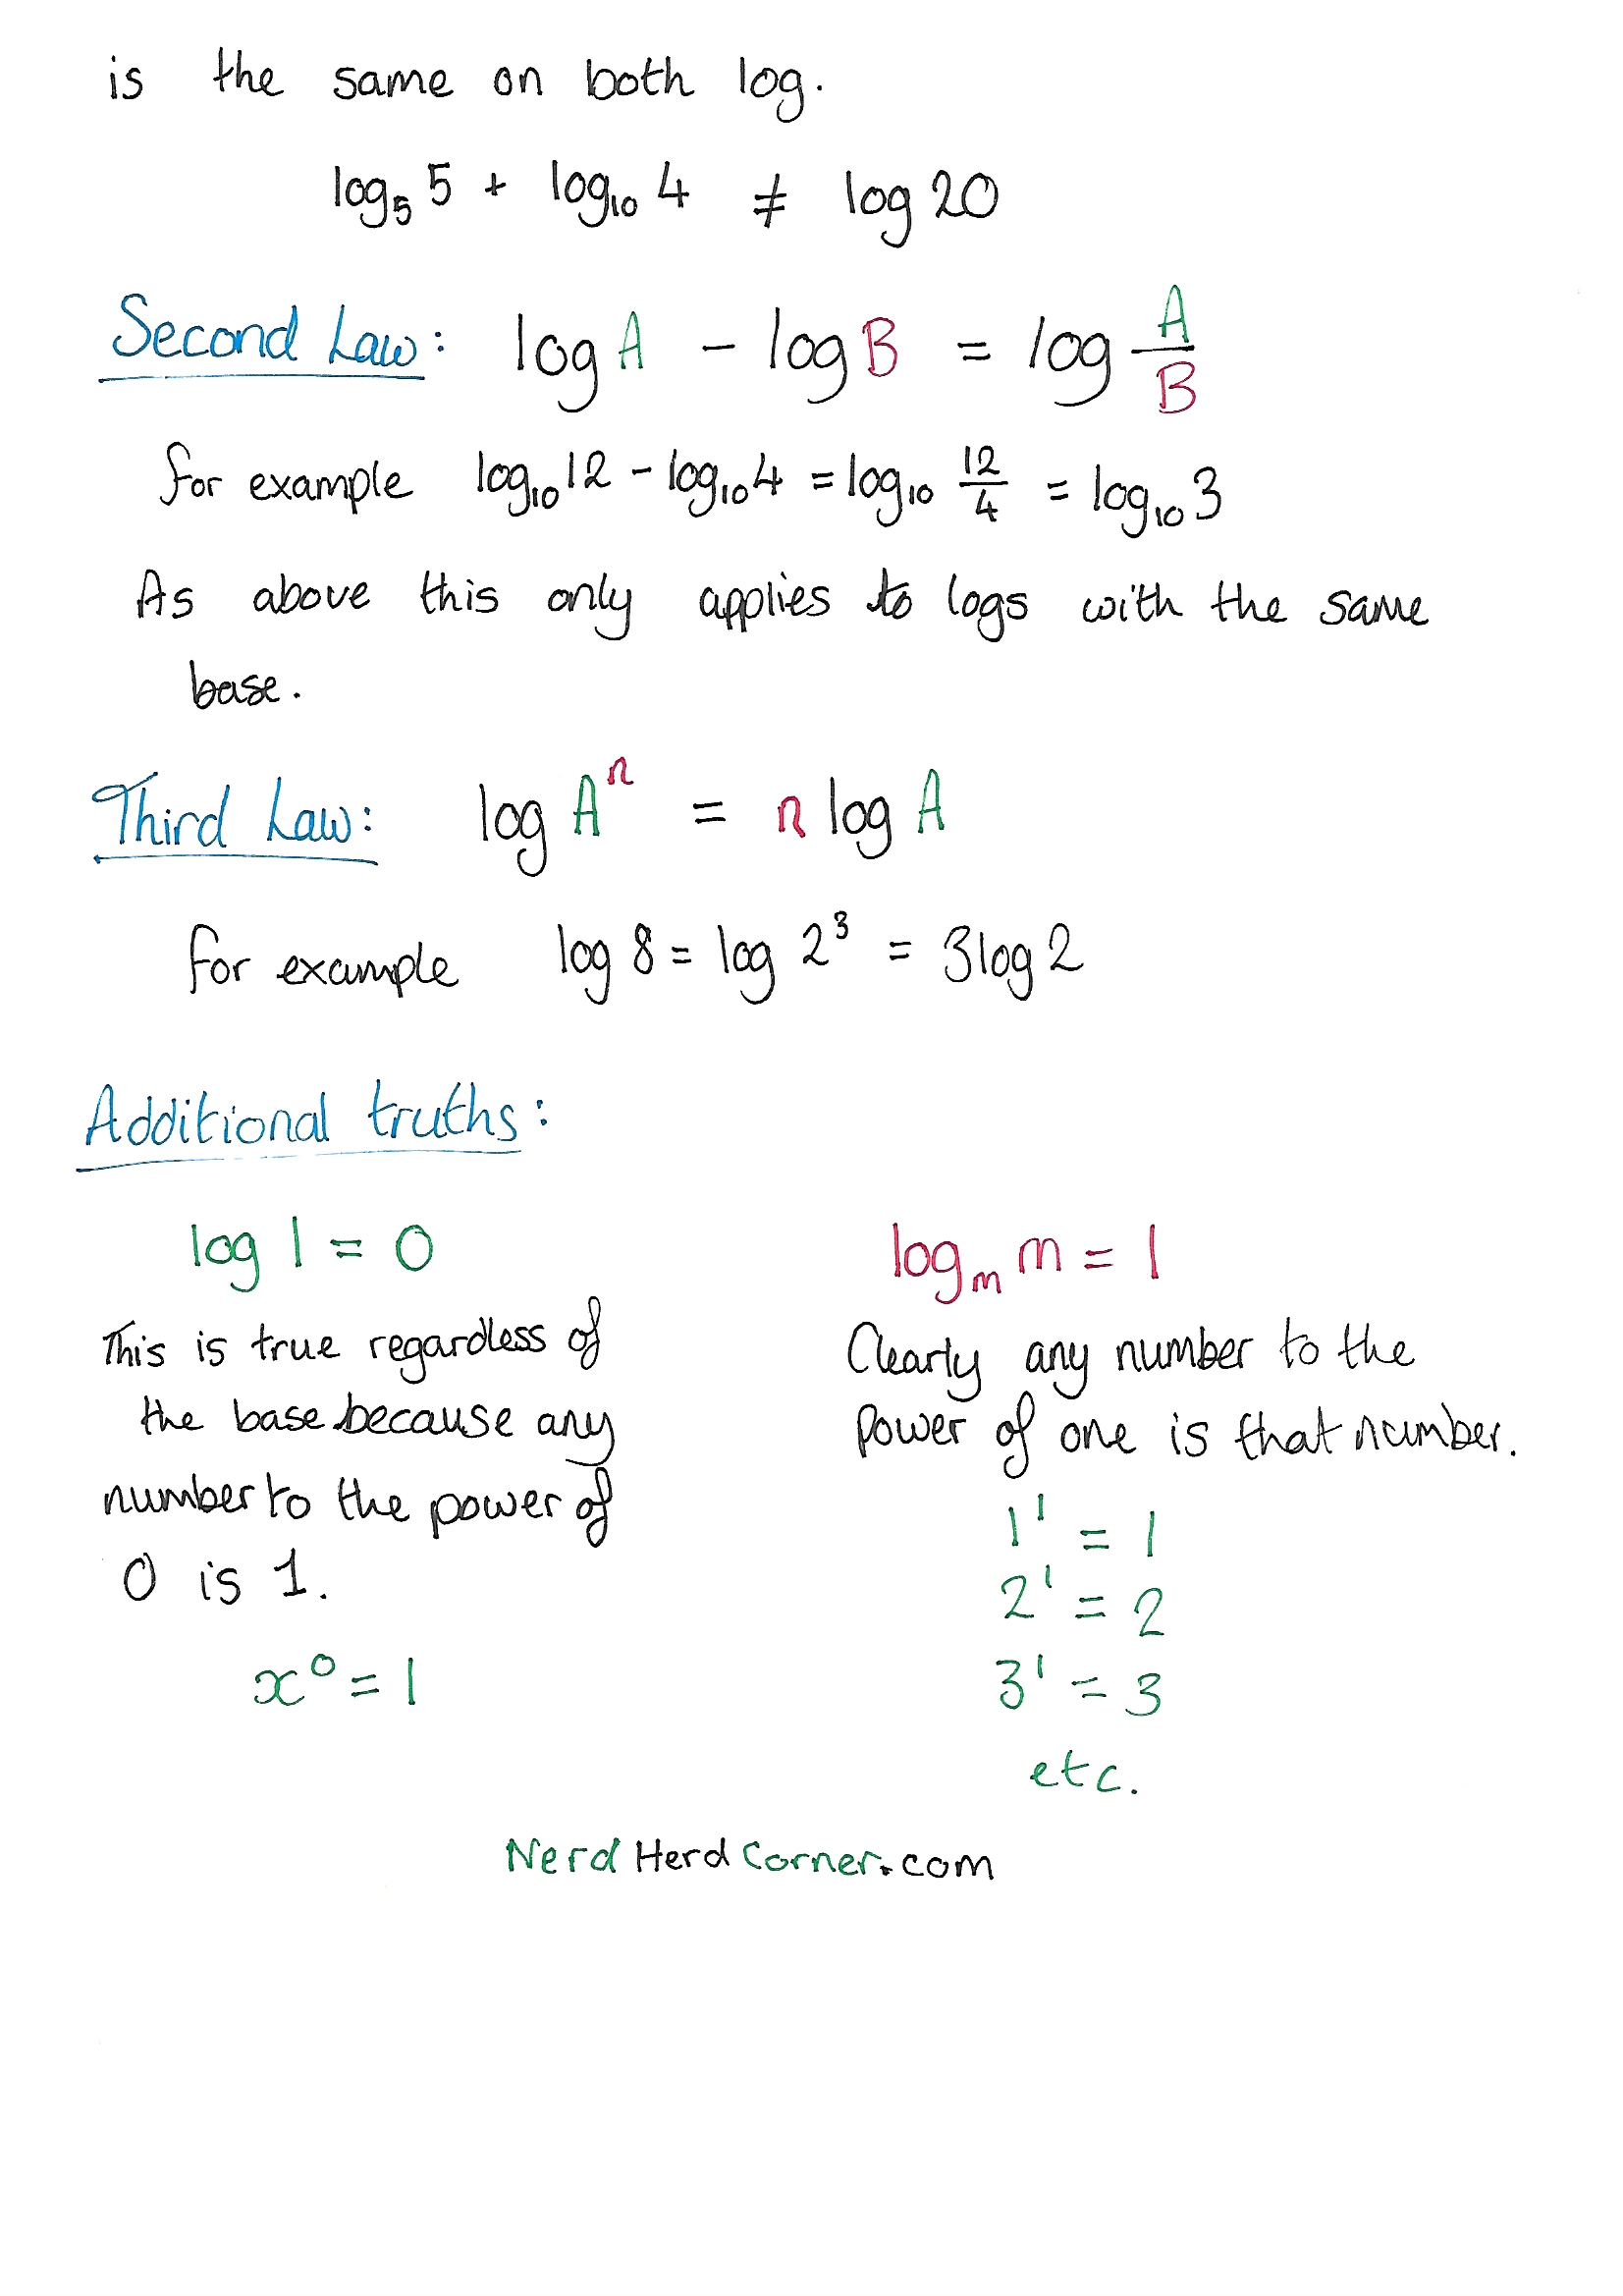 is the same on both log.
log₅ 5 + log₁₀ 4 ≠ log 20
Second Law: log A - log B = log A/B
for example log₁₀ 12 - log₁₀ 4 = log₁₀ 12/4 = log₁₀ 3
As above this only applies to logs with the same
base.
Third Law: log Aⁿ = n log A
for example log 8 = log 2³ = 3log 2
Additional truths:
log 1 = 0
This is true regardless of
the base because any
number to the power of
0 is 1.
x⁰ = 1
logₘ m = 1
Clearly any number to the
power of one is that number.
1¹ = 1
2¹ = 2
3¹ = 3
etc.
Nerd Herd Corner.com